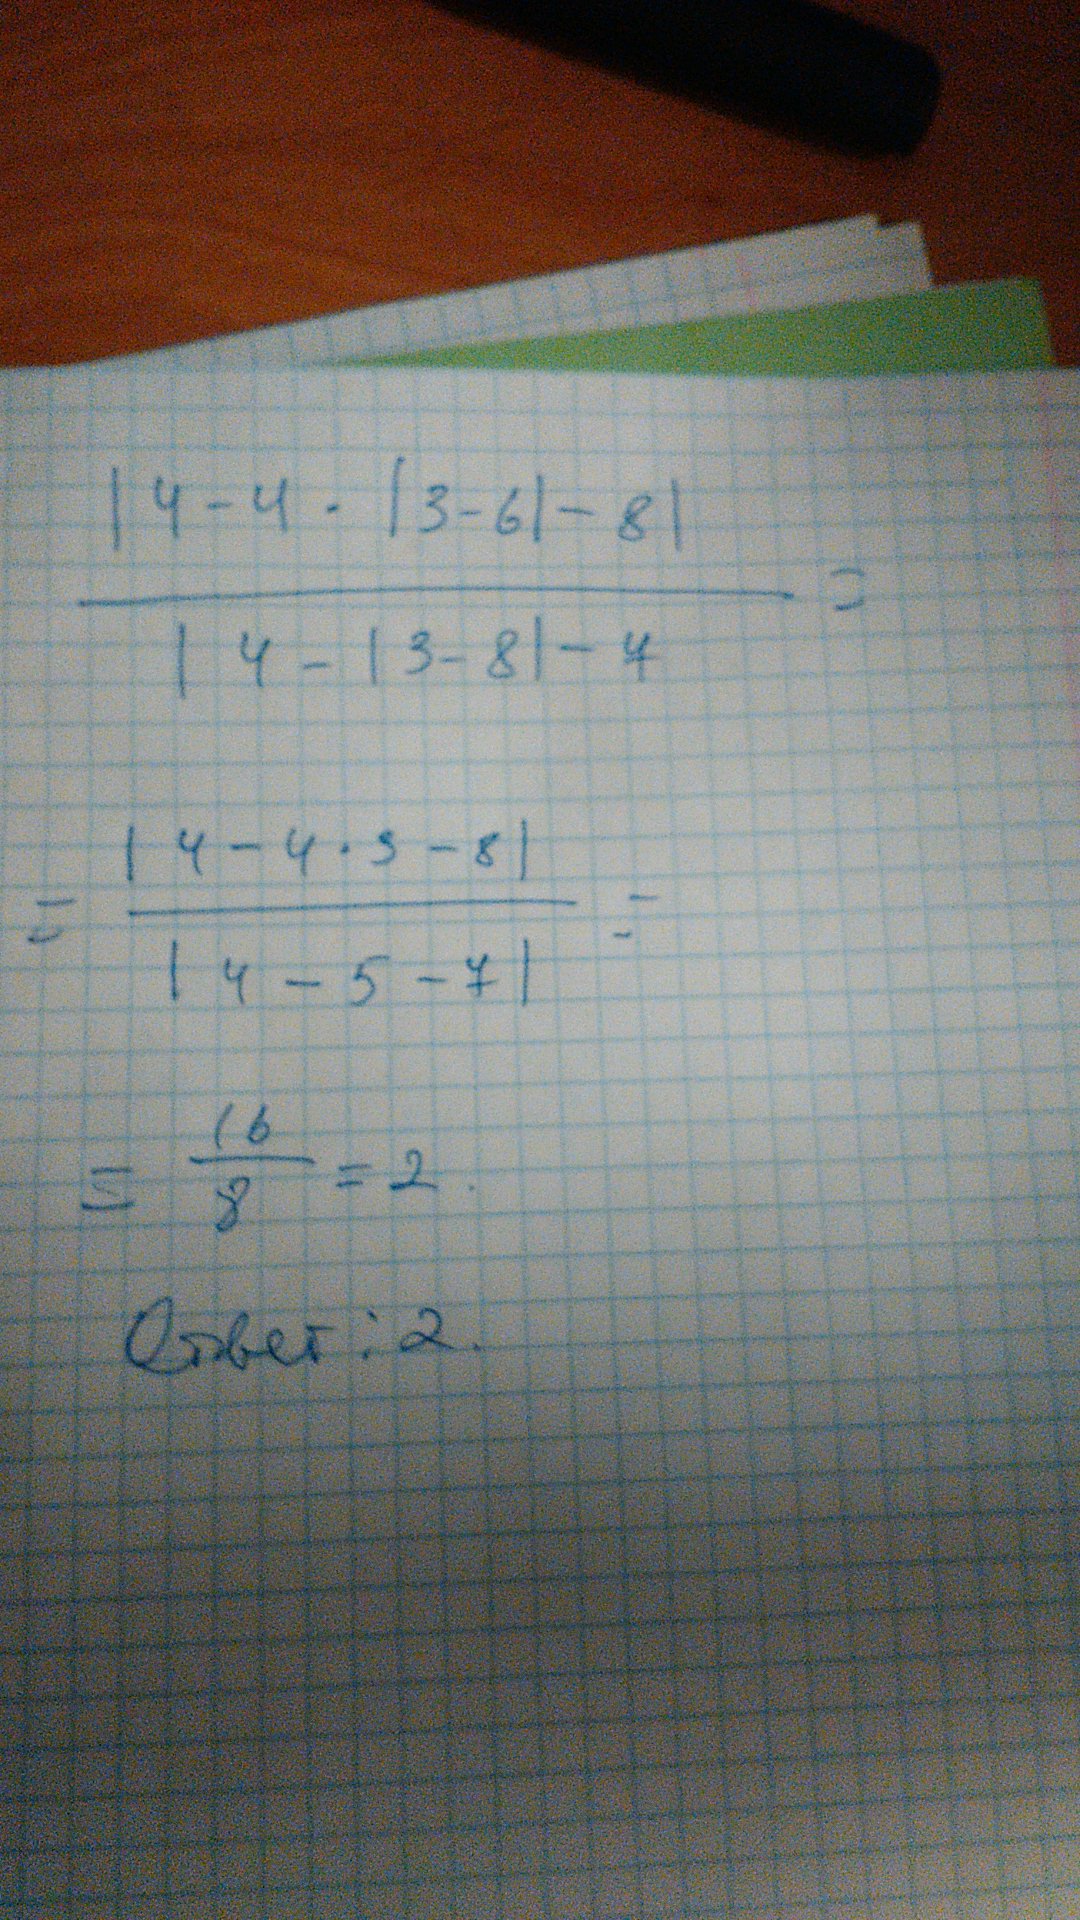 |4-4·|3-6|-8|
|4-|3-8|-7 =
= |4-4·3-8|
|4-5-7| =
= 16
8 = 2.
Ответ: 2.